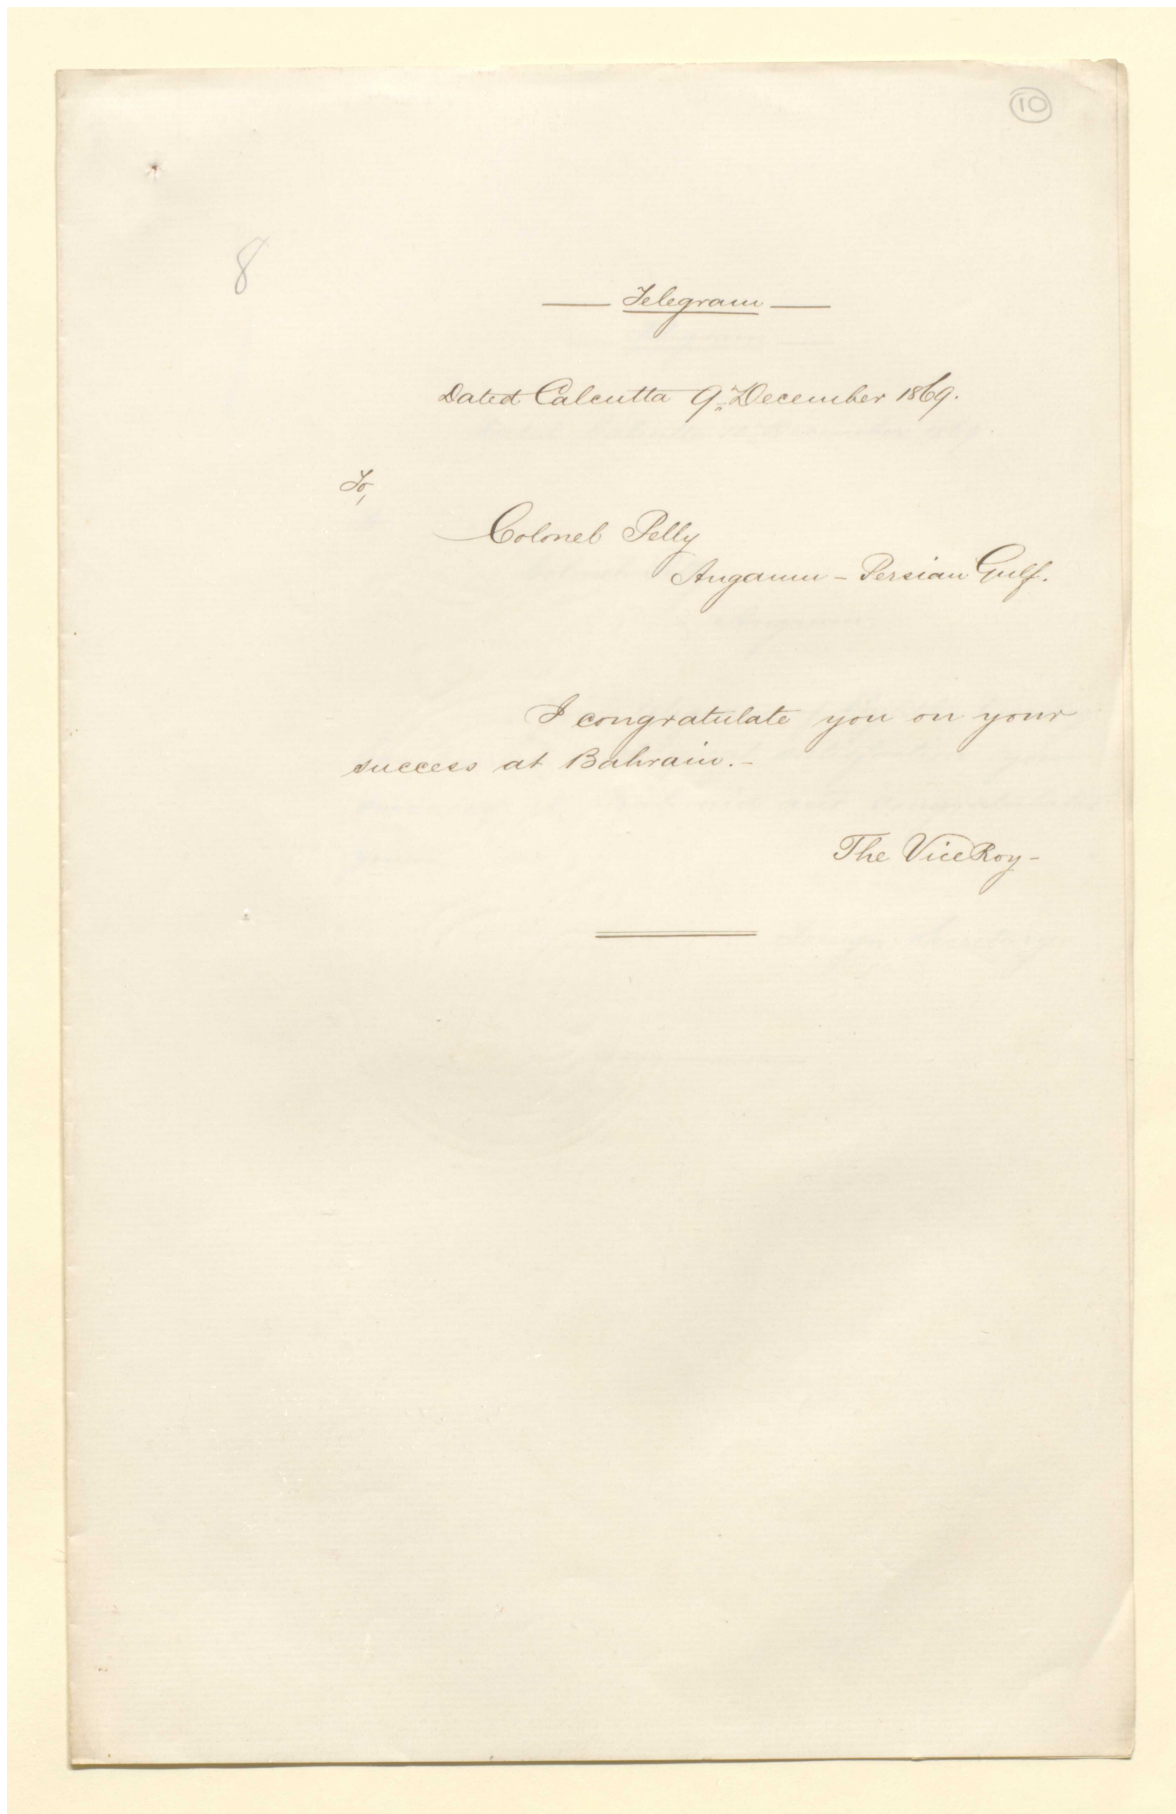 10
8
Telegram
Dated Calcutta 9th December 1869.
To,
Colonel Pelly
Angaum - Persian Gulf.
I congratulate you on your
success at Bahrain. -
The ViceRoy -